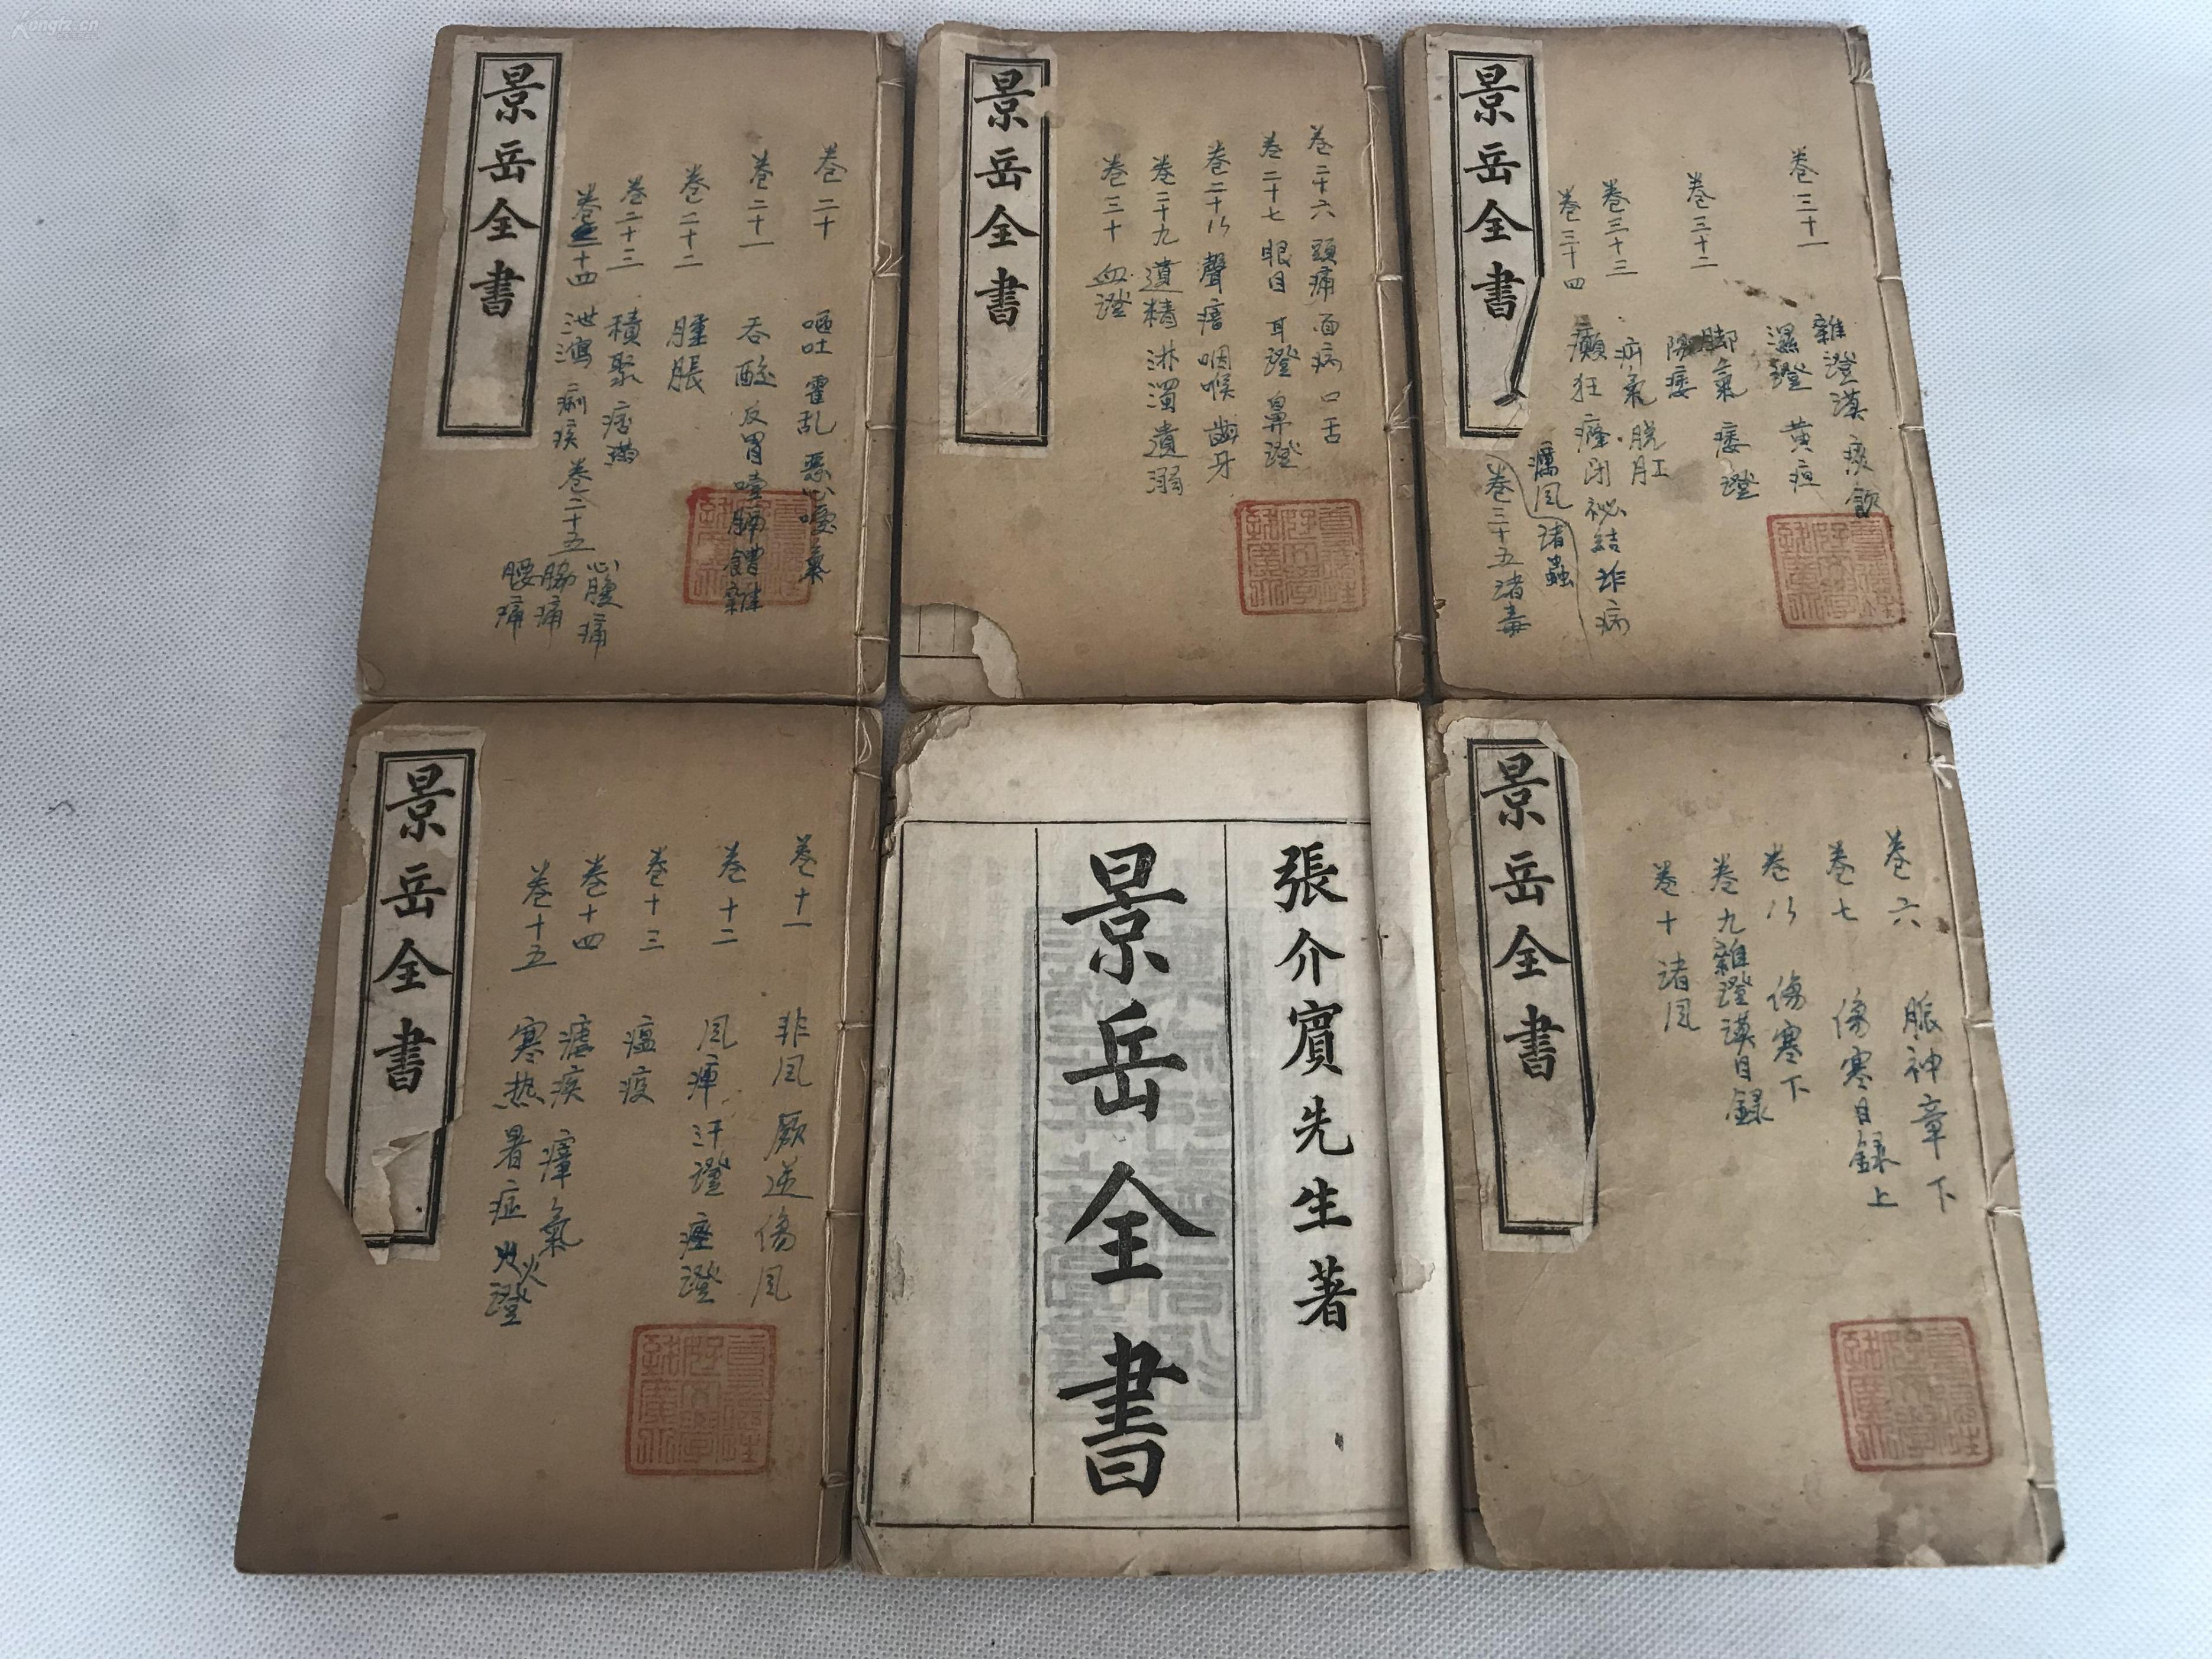 Kongfz.cn
景岳全書
卷二十 嘔吐 霍乱 惡心噯氣
卷二十一 吞酸 反胃 噎膈 嘈雜
卷二十二 腫脹
卷二十三 積聚 痞滿
卷二十四 泄瀉 痢疾
卷二十五 心腹痛
脇痛
腰痛
景岳全書
卷二十六 頭痛 面病 口舌
卷二十七 眼目 耳證 鼻證
卷二十八 聲瘖 咽喉 齒牙
卷二十九 遺精 淋濁 遺溺
卷三十 血證
景岳全書
卷三十一 雜證謨 痰飲
濕證 黃疸
卷三十二 脚氣 痿證
陽痿
卷三十三 疝氣 脫肛
卷三十四 癲狂 癃閉 祕結 詐病
癘風 諸蟲
卷三十五 諸毒
景岳全書
卷十一 非風 厥逆 傷風
卷十二 風痺 汗證 痙證
卷十三 瘟疫
卷十四 瘧疾 瘴氣
卷十五 寒热 暑症 火證
張介賓先生著
景岳全書
景岳全書
卷六 脈神章下
卷七 傷寒目録上
卷八 傷寒下
卷九 雜證謨目録
卷十 諸风